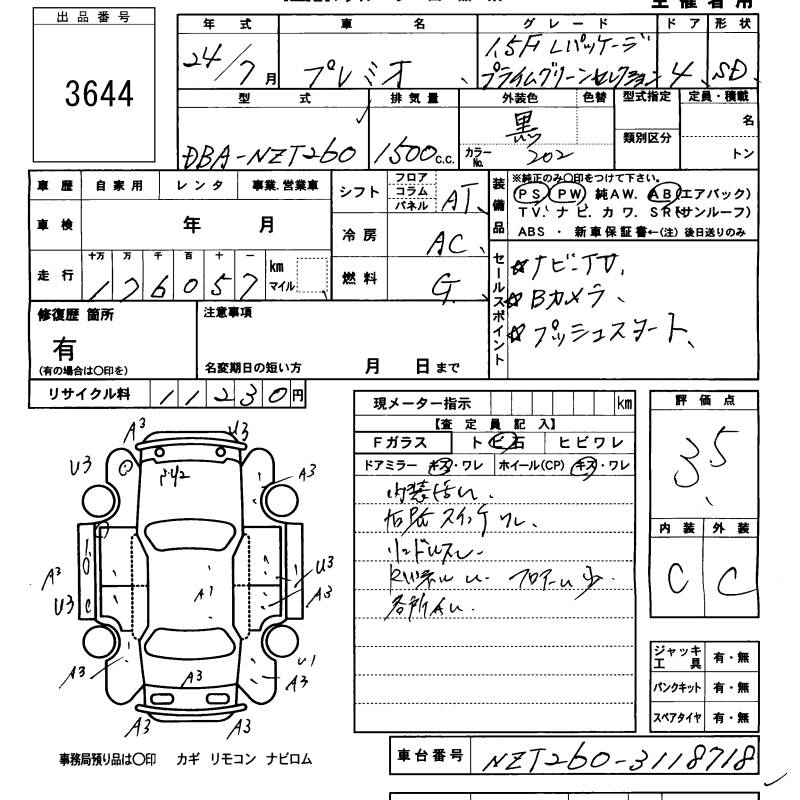 出品番号
3644
年 式 車 名 グレード ドア 形状
24/7月 プレミオ 1.5F Lパッケージ
プライムグリーンセレクション 4 SD
型 式 排気量 外装色 色替 型式指定 定員・積載
DBA-NZT260 1500c.c. 黒 名
カラーNo. 202 類別区分 トン
車歴 自家用 レンタ 事業.営業車
車検 年 月
十万 万 千 百 十 一
走行 176057 km マイル
シフト フロア コラム パネル AT
冷房 AC
燃料 G
装備品 ※純正のみ〇印をつけて下さい。
PS PW 純AW. AB(エアバック)
TV. ナビ. カワ. SR(サンルーフ)
ABS ・ 新車保証書←(注)後日送りのみ
セールスポイント ☆ナビ・TV.
☆Bカメラ、
☆プッシュスタート、
修復歴 箇所 注意事項
有
(有の場合は〇印を) 名変期日の短い方 月 日まで
リサイクル料 11230円
現メーター指示 km
【査定員記入】
Fガラス トビ石 ヒビワレ
ドアミラー キズ・ワレ ホイール(CP) キズ・ワレ
評価点
3.5
内装 外装
C C
A3 U3
U3 A3
A3 U3
U3 A1 A3
A3 A3 U1
A3
A3 A3
ジャッキ工具 有・無
パンクキット 有・無
スペアタイヤ 有・無
事務局預り品は〇印 カギ リモコン ナビロム
車台番号 NZT260-3118718